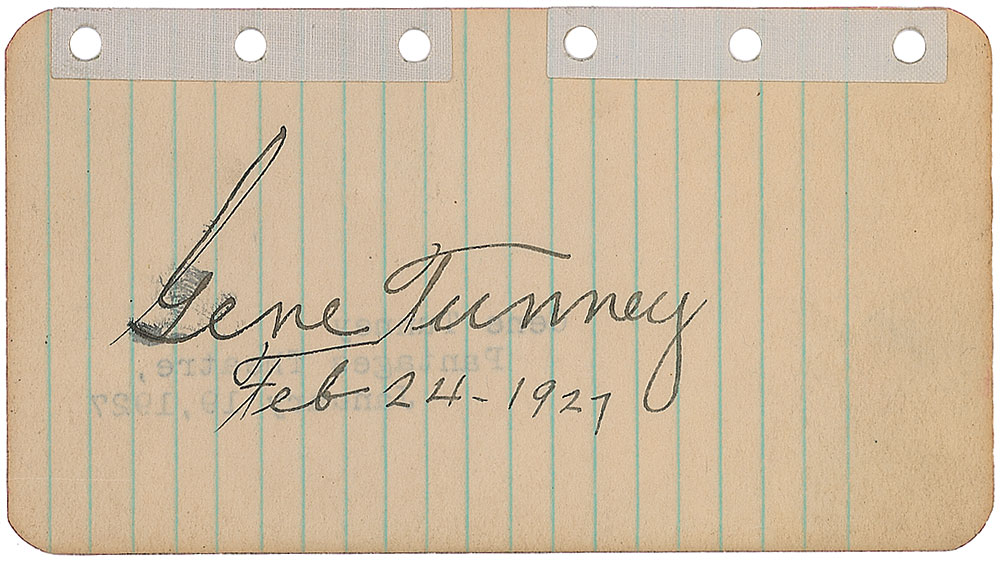 Gene Tunney
Feb 24 - 1927